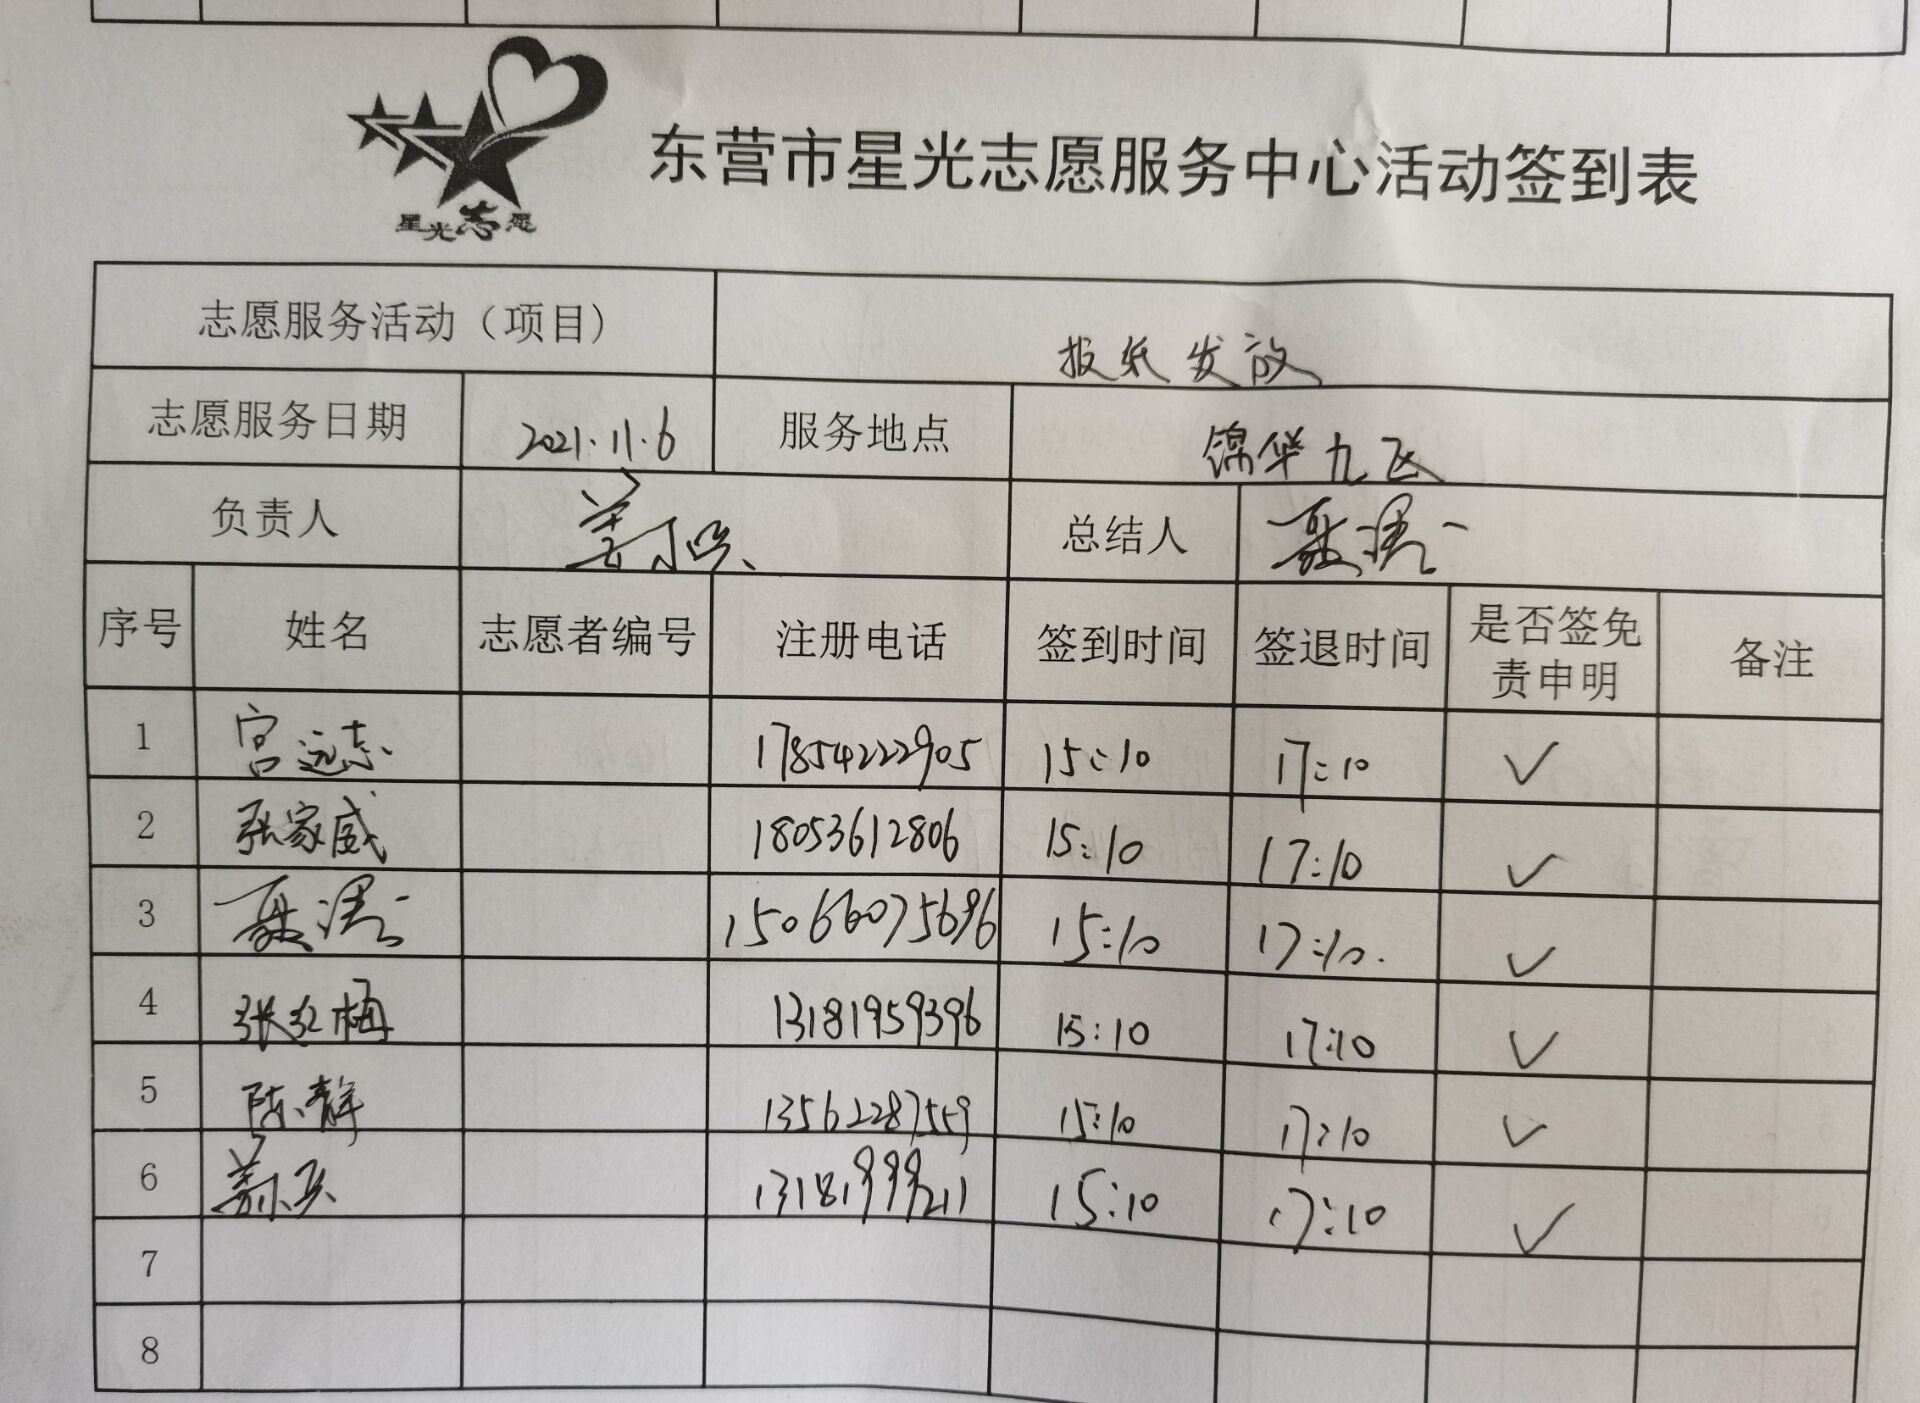 星光志愿
东营市星光志愿服务中心活动签到表
志愿服务活动（项目） 报纸发放
志愿服务日期 2021.11.6 服务地点 锦华九区
负责人 总结人
序号 姓名 志愿者编号 注册电话 签到时间 签退时间 是否签免责申明 备注
1 宫远志 17854222905 15:10 17:10 ✓
2 张家盛 18053612806 15:10 17:10 ✓
3 15066075696 15:10 17:10. ✓
4 张红梅 13181959396 15:10 17:10 ✓
5 陈静 13562287559 15:10 17:10 ✓
6 13181999211 15:10 17:10 ✓
7
8